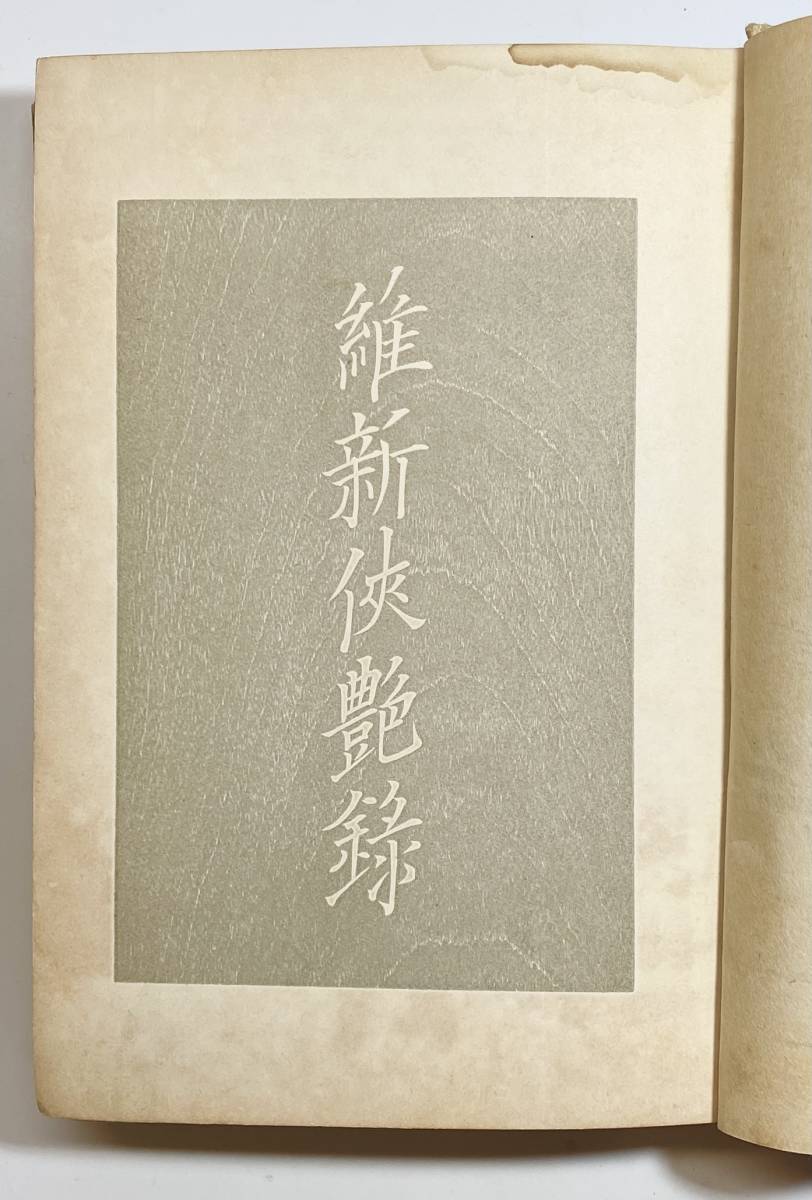 維新俠艶錄